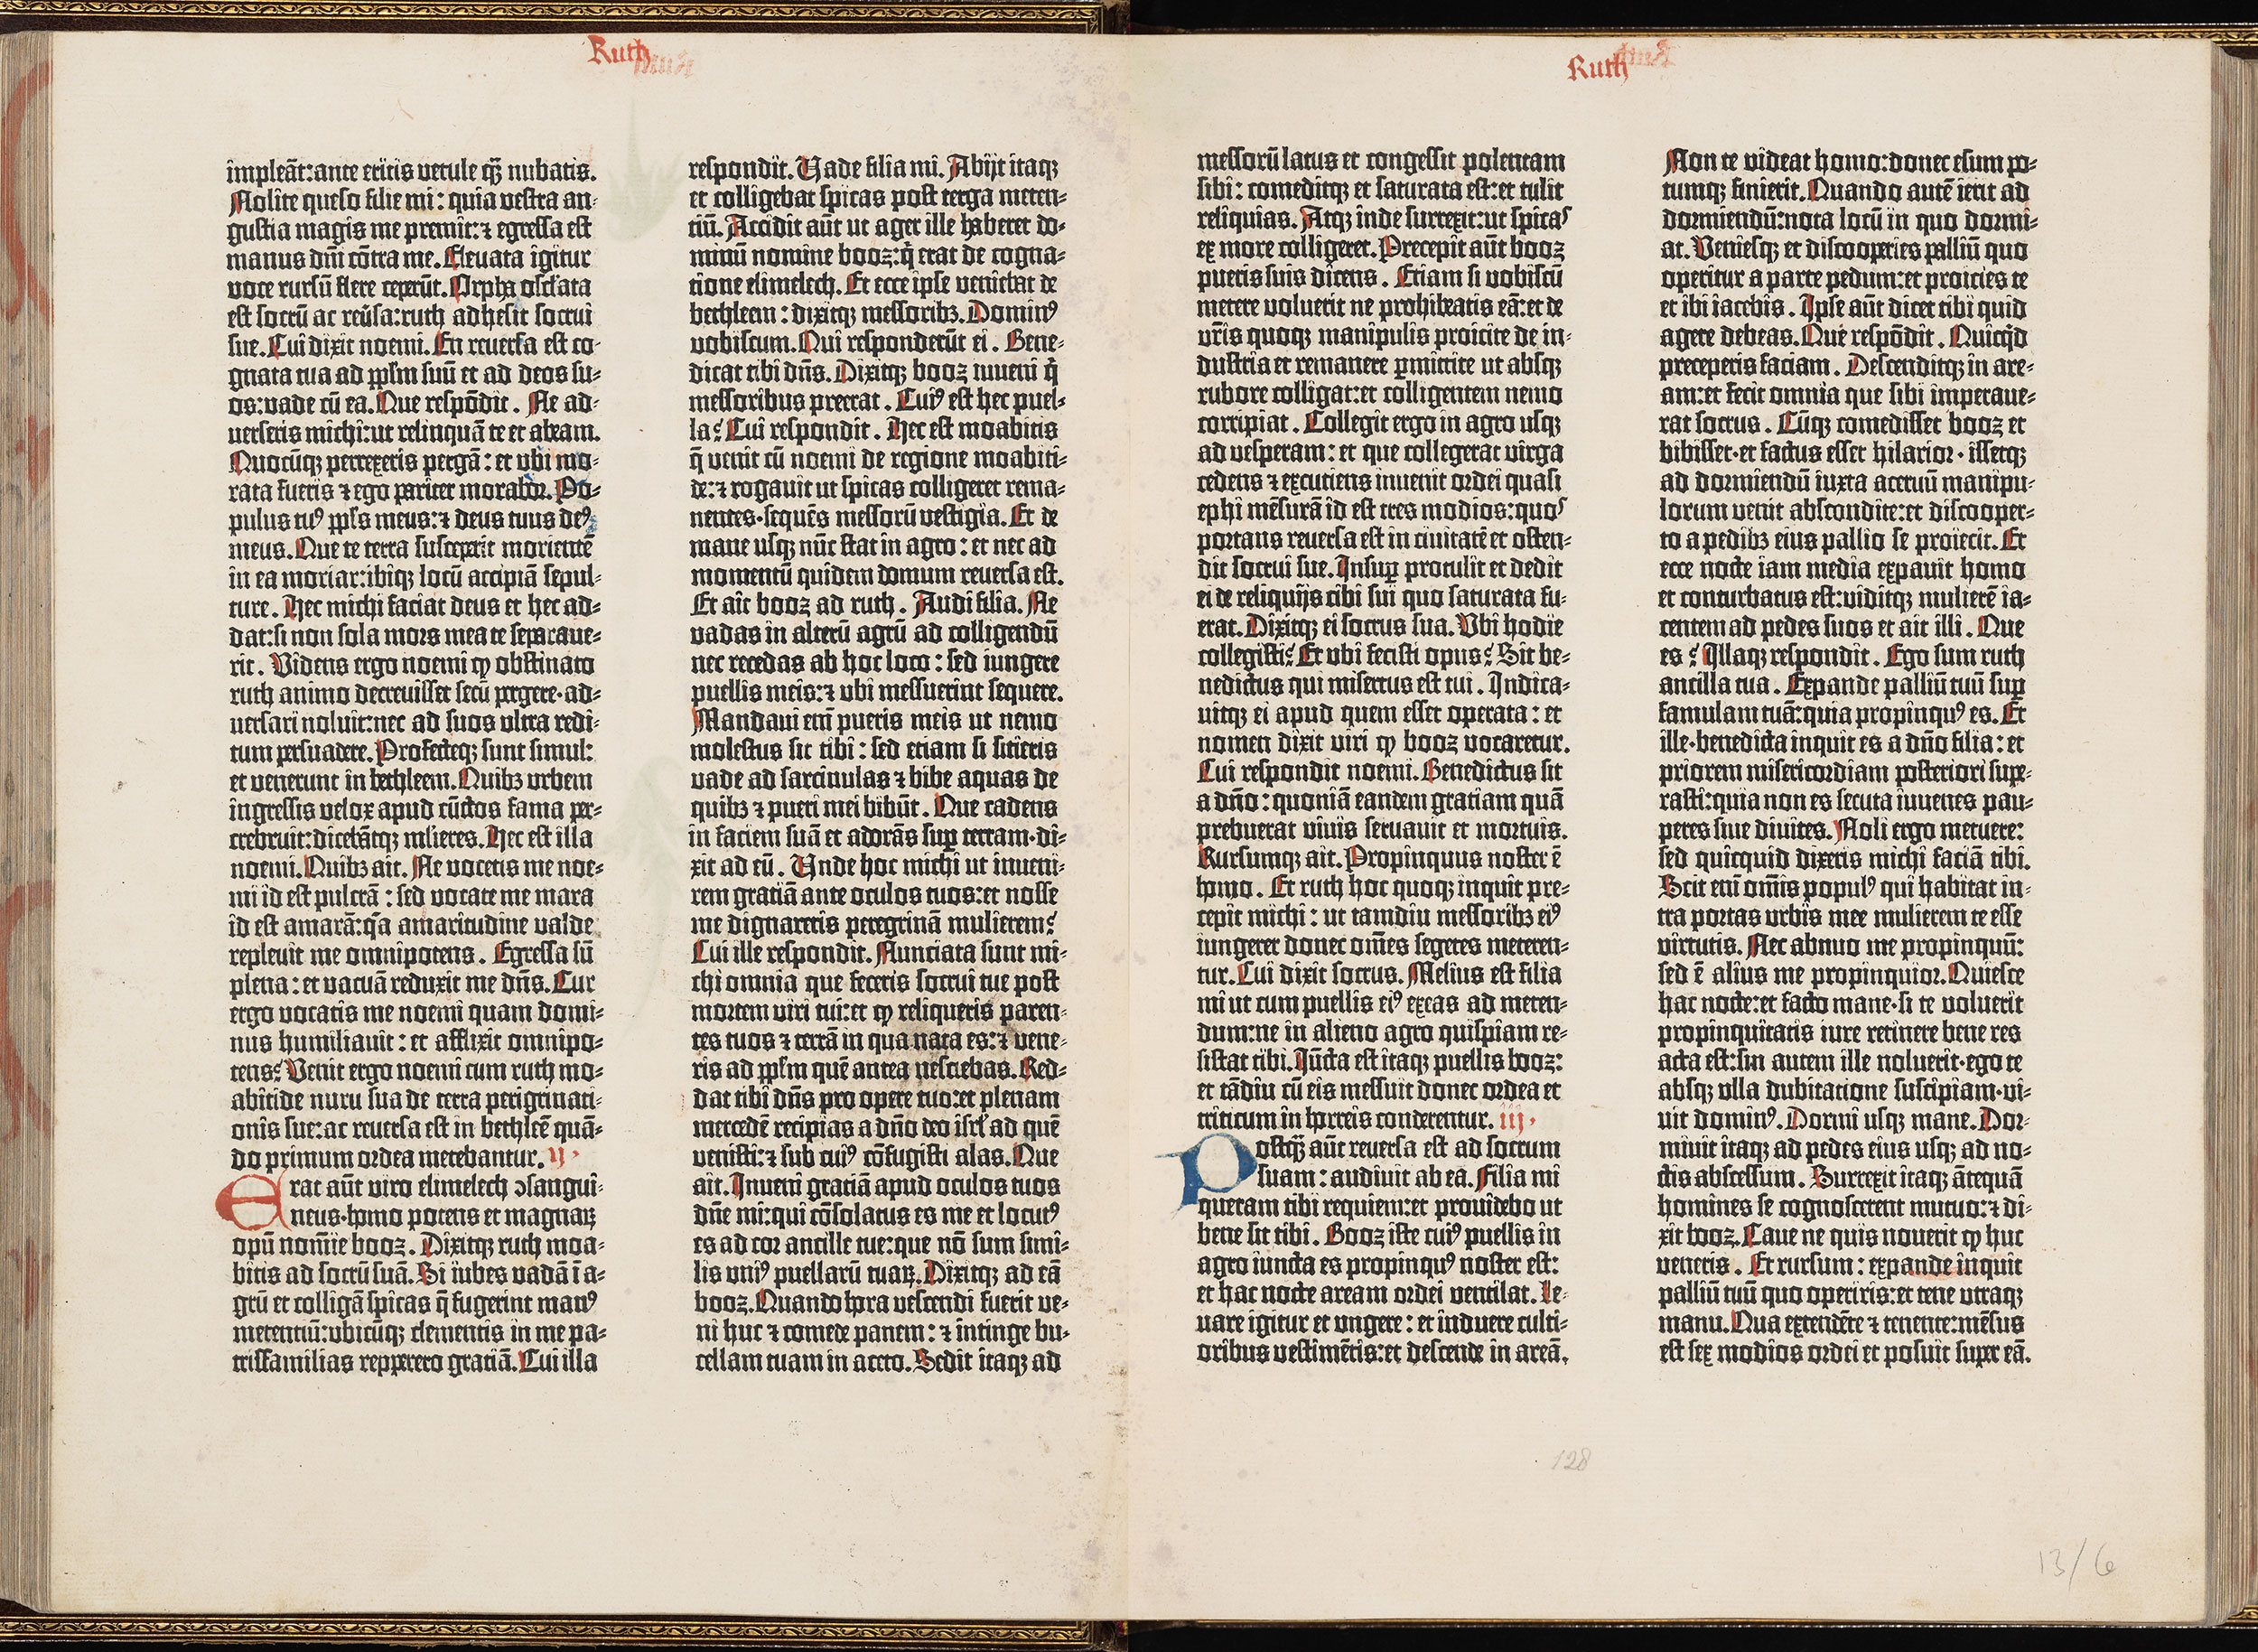 Ruth
impleāt:ante eritis vetule q̄ȝ nubatis.
Nolite queso filie mi: quia vestra an-
gustia magis me premit:⁊ egressa est
manus dn̄i cōtra me. Elevata igitur
voce rursū flere ceperūt. Orpha osc̄lata
est socrū ac reūsa:ruth adhesit socrui
sue. Cui dixit noemi. En reversa est co-
gnata tua ad pp̄lm suū et ad deos su-
os:vade cū ea. Que respōdit. Ne ad-
verseris michi:ut relinquā te et abeam.
Quocūqȝ perrexeris pergā: et ubi mo-
rata fueris ⁊ ego pariter morabor. Po-
pulus tuꝰ ppl̄s meus:⁊ deus tuus deꝰ
meus. Que te terra susceperit morientē
in ea moriar:ibiqȝ locū accipiā sepul-
ture. Hec michi faciat deus et hec ad-
dat:si non sola mors mea te separave-
rit. Videns ergo noemi ꝙ obstinato
ruth animo decrevisset secū pergere·ad-
versari noluit:nec ad suos ultra redi-
tum persuadere. Profecteqȝ sunt simul:
et venerunt in bethleem. Quibȝ urbem
ingressis velox apud cūctos fama per-
crebruit:dicebātqȝ ml̄ieres. Hec est illa
noemi. Quibȝ ait. Ne vocetis me noe-
mi id est pulcrā: sed vocate me mara
id est amarā:q̄a amaritudine valde
replevit me omnipotens. Egressa sū
plena: et vacuā reduxit me dn̄s. Cur
ergo vocatis me noemi quam domi-
nus humiliavit: et afflixit omnipo-
tens? Venit ergo noemi cum ruth mo-
abitide nuru sua de terra perigrinati-
onis sue:ac reversa est in bethleē quā-
do primum ordea metebantur. ij·
Erat aūt viro elimelech ↄsangui-
neus·homo potens et magnaꝝ
opū nom̄ie booz. Dixitqȝ ruth moa-
bitis ad socrū suā. Si iubes vadā ī a-
grū et colligā spicas q̄ fugerint manꝰ
metentiū:ubicūqȝ clementis in me pa-
trisfamilias repperero gratiā. Cui illa
respondit. Vade filia mi. Abijt itaqȝ
et colligebat spicas post terga meten-
tiū. Accidit aūt ut ager ille haberet do-
minū nomine booz:q̇ erat de cogna-
tione elimelech. Et ecce ipse veniebat de
bethleem: dixitqȝ messoribȝ. Dominꝰ
vobiscum. Qui responderūt ei. Bene-
dicat tibi dn̄s. Dixitqȝ booz iuveni q̇
messoribus preerat. Cuiꝰ est hec puel-
la? Cui respondit. Hec est moabitis
q̄ venit cū noemi de regione moabiti-
de:⁊ rogavit ut spicas colligeret rema-
nentes·sequēs messorū vestigia. Et de
mane usqȝ nūc stat in agro: et nec ad
momentū quidem domum reversa est.
Et ait booz ad ruth. Audi filia. Ne
vadas in alterū agrū ad colligendū
nec recedas ab hoc loco: sed iungere
puellis meis:⁊ ubi messuerint sequere.
Mandavi enī pueris meis ut nemo
molestus sit tibi: sed etiam si sitieris
vade ad sarcinulas ⁊ bibe aquas de
quibȝ ⁊ pueri mei bibūt. Que cadens
in faciem suā et adorās suꝑ terram·di-
xit ad eū. Unde hoc michi ut inveni-
rem gratiā ante oculos tuos:et nosse
me dignareris peregrinā mulierem?
Cui ille respondit. Nunciata sunt mi-
chi omnia que feceris socrui tue post
mortem viri tui:et ꝙ reliqueris paren-
tes tuos ⁊ terrā in qua nata es:⁊ vene-
ris ad pp̄lm quē antea nesciebas. Red-
dat tibi dn̄s pro opere tuo:et plenam
mercedē recipias a dn̄o deo isrl̄ ad quē
venisti:⁊ sub cuiꝰ cōfugisti alas. Que
ait. Inveni gratiā apud oculos tuos
dn̄e mi:qui cōsolatus es me et locutꝰ
es ad cor ancille tue:que nō sum simi-
lis uniꝰ puellarū tuaꝝ. Dixitqȝ ad eā
booz. Quando hora vescendi fuerit ve-
ni huc ⁊ comede panem: ⁊ intinge bu-
cellam tuam in aceto. Sedit itaqȝ ad
Ruth
messorū latus et congessit polentam
sibi: comeditqȝ et saturata est:et tulit
reliquias. Atqȝ inde surrexit:ut spicas
ex more colligeret. Precepit aūt booz
pueris suis dicens. Etiam si vobiscū
metere voluerit ne prohibeatis eā:et de
vr̄is quoqȝ manipulis proicite de in-
dustria et remanere ꝑmittite ut absqȝ
rubore colligat:et colligentem nemo
corripiat. Collegit ergo in agro usqȝ
ad vesperam: et que collegerat virga
cedens ⁊ excutiens invenit ordei quasi
ephi mēsurā id est tres modios:quos
portans reversa est in civitatē et osten-
dit socrui sue. Insuꝑ protulit et dedit
ei de reliquijs cibi sui quo saturata fu-
erat. Dixitqȝ ei socrus sua. Ubi hodie
collegisti? Et ubi fecisti opus? Sit be-
nedictus qui misertus est tui. Indica-
vitqȝ ei apud quem esset operata: et
nomen dixit viri ꝙ booz vocaretur.
Cui respondit noemi. Benedictus sit
a dn̄o: quoniā eandem gratiam quā
prebuerat vivis servavit et mortuis.
Rursumqȝ ait. Propinquus noster ē
homo. Et ruth hoc quoqȝ inquit pre-
cepit michi: ut tamdiu messoribȝ eiꝰ
iungerer donec om̄es segetes meteren-
tur. Cui dixit socrus. Melius est filia
mi ut cum puellis eiꝰ exeas ad meten-
dum:ne in alieno agro quispiam re-
sistat tibi. Iūcta est itaqȝ puellis booz:
et tādiu cū eis messuit donec ordea et
triticum in horreis conderentur. iij·
Postq̄ȝ aūt reversa est ad socrum
suam: audivit ab ea. Filia mi
queram tibi requiem:et providebo ut
bene sit tibi. Booz iste cuiꝰ puellis in
agro iuncta es propinquꝰ noster est:
et hac nocte aream ordei ventilat. La-
vare igitur et ungere: et induere culti-
oribus vestimētis:et descende in areā.
Non te videat homo:donec esum po-
tumqȝ finierit. Quando autē ierit ad
dormiendū:nota locū in quo dormi-
at. Veniesqȝ et discooperies palliū quo
operitur a parte pedum:et proicies te
et ibi iacebis. Ipse aūt dicet tibi quid
agere debeas. Que respōdit. Quicq̇d
preceperis faciam. Descenditqȝ in are-
am:et fecit omnia que sibi imperave-
rat socrus. Cūqȝ comedisset booz et
bibisset·et factus esset hilarior·issetqȝ
ad dormiendū iuxta acervū manipu-
lorum venit abscondite:et discooper-
to a pedibȝ eius pallio se proiecit. Et
ecce nocte iam media expavit homo
et conturbatus est:viditqȝ mulierē ia-
centem ad pedes suos et ait illi. Que
es? Illaqȝ respondit. Ego sum ruth
ancilla tua. Expande palliū tuū suꝑ
famulam tuā:quia propinquꝰ es. Et
ille·benedicta inquit es a dn̄o filia: et
priorem misericordiam posteriori supe-
rasti:quia non es secuta iuvenes pau-
peres sive divites. Noli ergo metuere:
sed quicquid dixeris michi faciā tibi.
Scit enī om̄is populꝰ qui habitat in-
tra portas urbis mee mulierem te esse
virtutis. Nec abnuo me propinquū:
sed ē alius me propinquior. Quiesce
hac nocte:et facto mane·si te voluerit
propinquitatis iure retinere bene res
acta est:sin autem ille noluerit·ego te
absqȝ ulla dubitatione suscipiam·vi-
vit dominꝰ. Dormi usqȝ mane. Dor-
mivit itaqȝ ad pedes eius usqȝ ad no-
ctis abscessum. Surrexit itaqȝ ātequā
homines se cognoscerent mutuo:⁊ di-
xit booz. Cave ne quis noverit ꝙ huc
veneris. Et rursum: expande inquit
palliū tuū quo operiris:et tene utraqȝ
manu. Qua extendēte ⁊ tenente:mēsus
est sex modios ordei et posuit super eā.
128
13/6